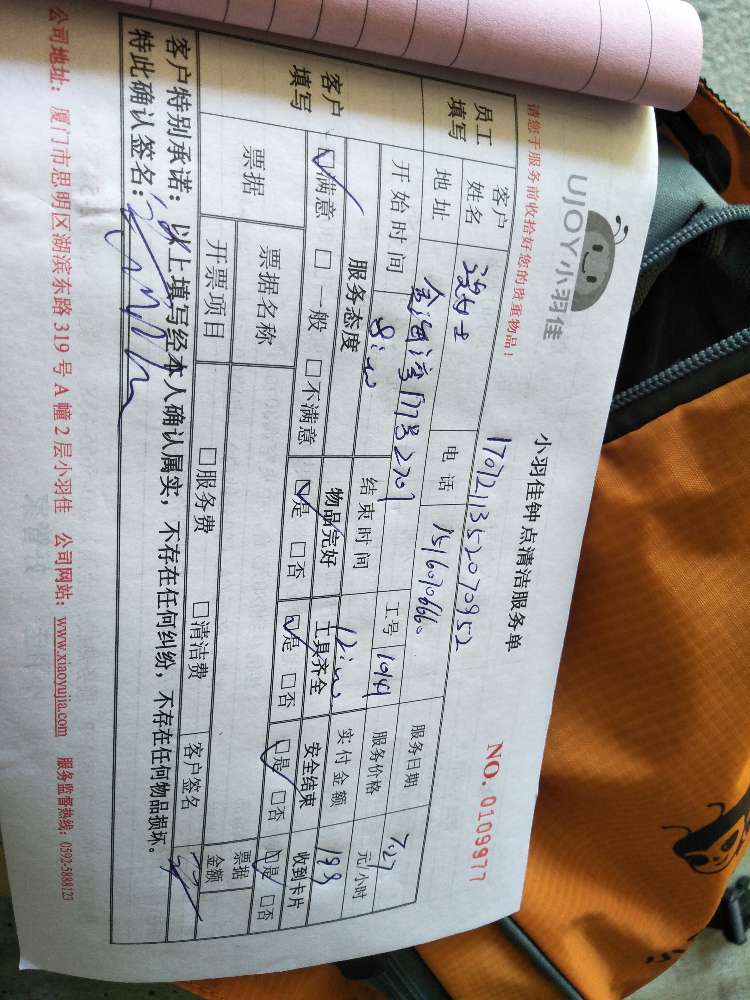 UJOY小羽佳
小羽佳钟点清洁服务单
请您于服务前收拾好您的贵重物品!
NO. 0109977
员工填写 客户姓名 电话 服务日期 7.27
地址 金海湾17号2701 工号 1014 服务价格 元/小时
开始时间 8:00 结束时间 12:00 实付金额 199
客户填写 服务态度 物品完好 工具齐全 安全结束 收到卡片
☑满意 □一般 □不满意 ☑是 □否 ☑是 □否 ☑是 □否 ☑是 □否
票据 票据名称 票据金额
开票项目 □服务费 □清洁费 客户签名
客户特别承诺:以上填写经本人确认属实,不存在任何纠纷,不存在任何物品损坏。
特此确认签名:
公司地址:厦门市思明区湖滨东路319号A幢2层小羽佳 公司网站:www.xiaoyujia.com 服务监督热线:0592-5888123